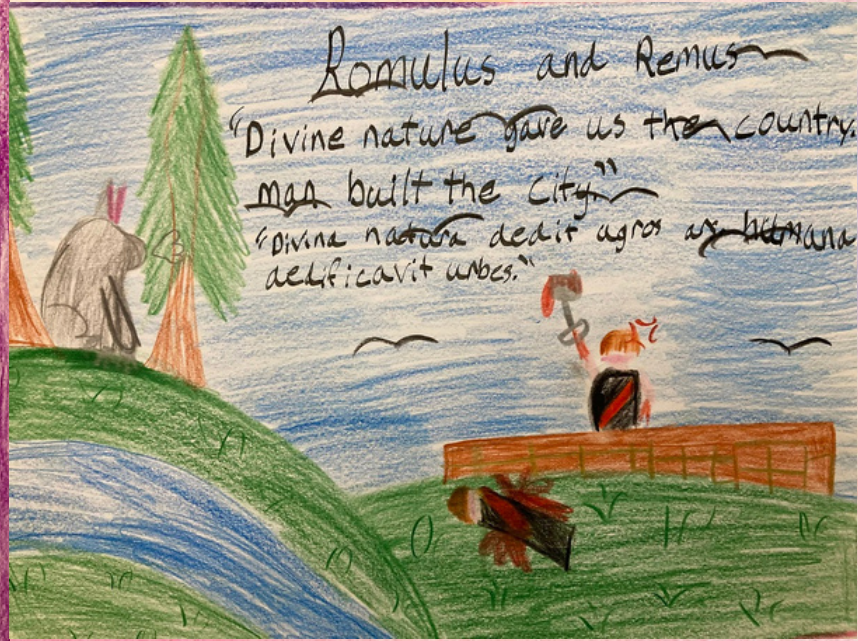 Romulus and Remus
"Divine nature gave us the country.
man built the city"
"Divina natura dedit agros ars humana
aedificavit urbes."